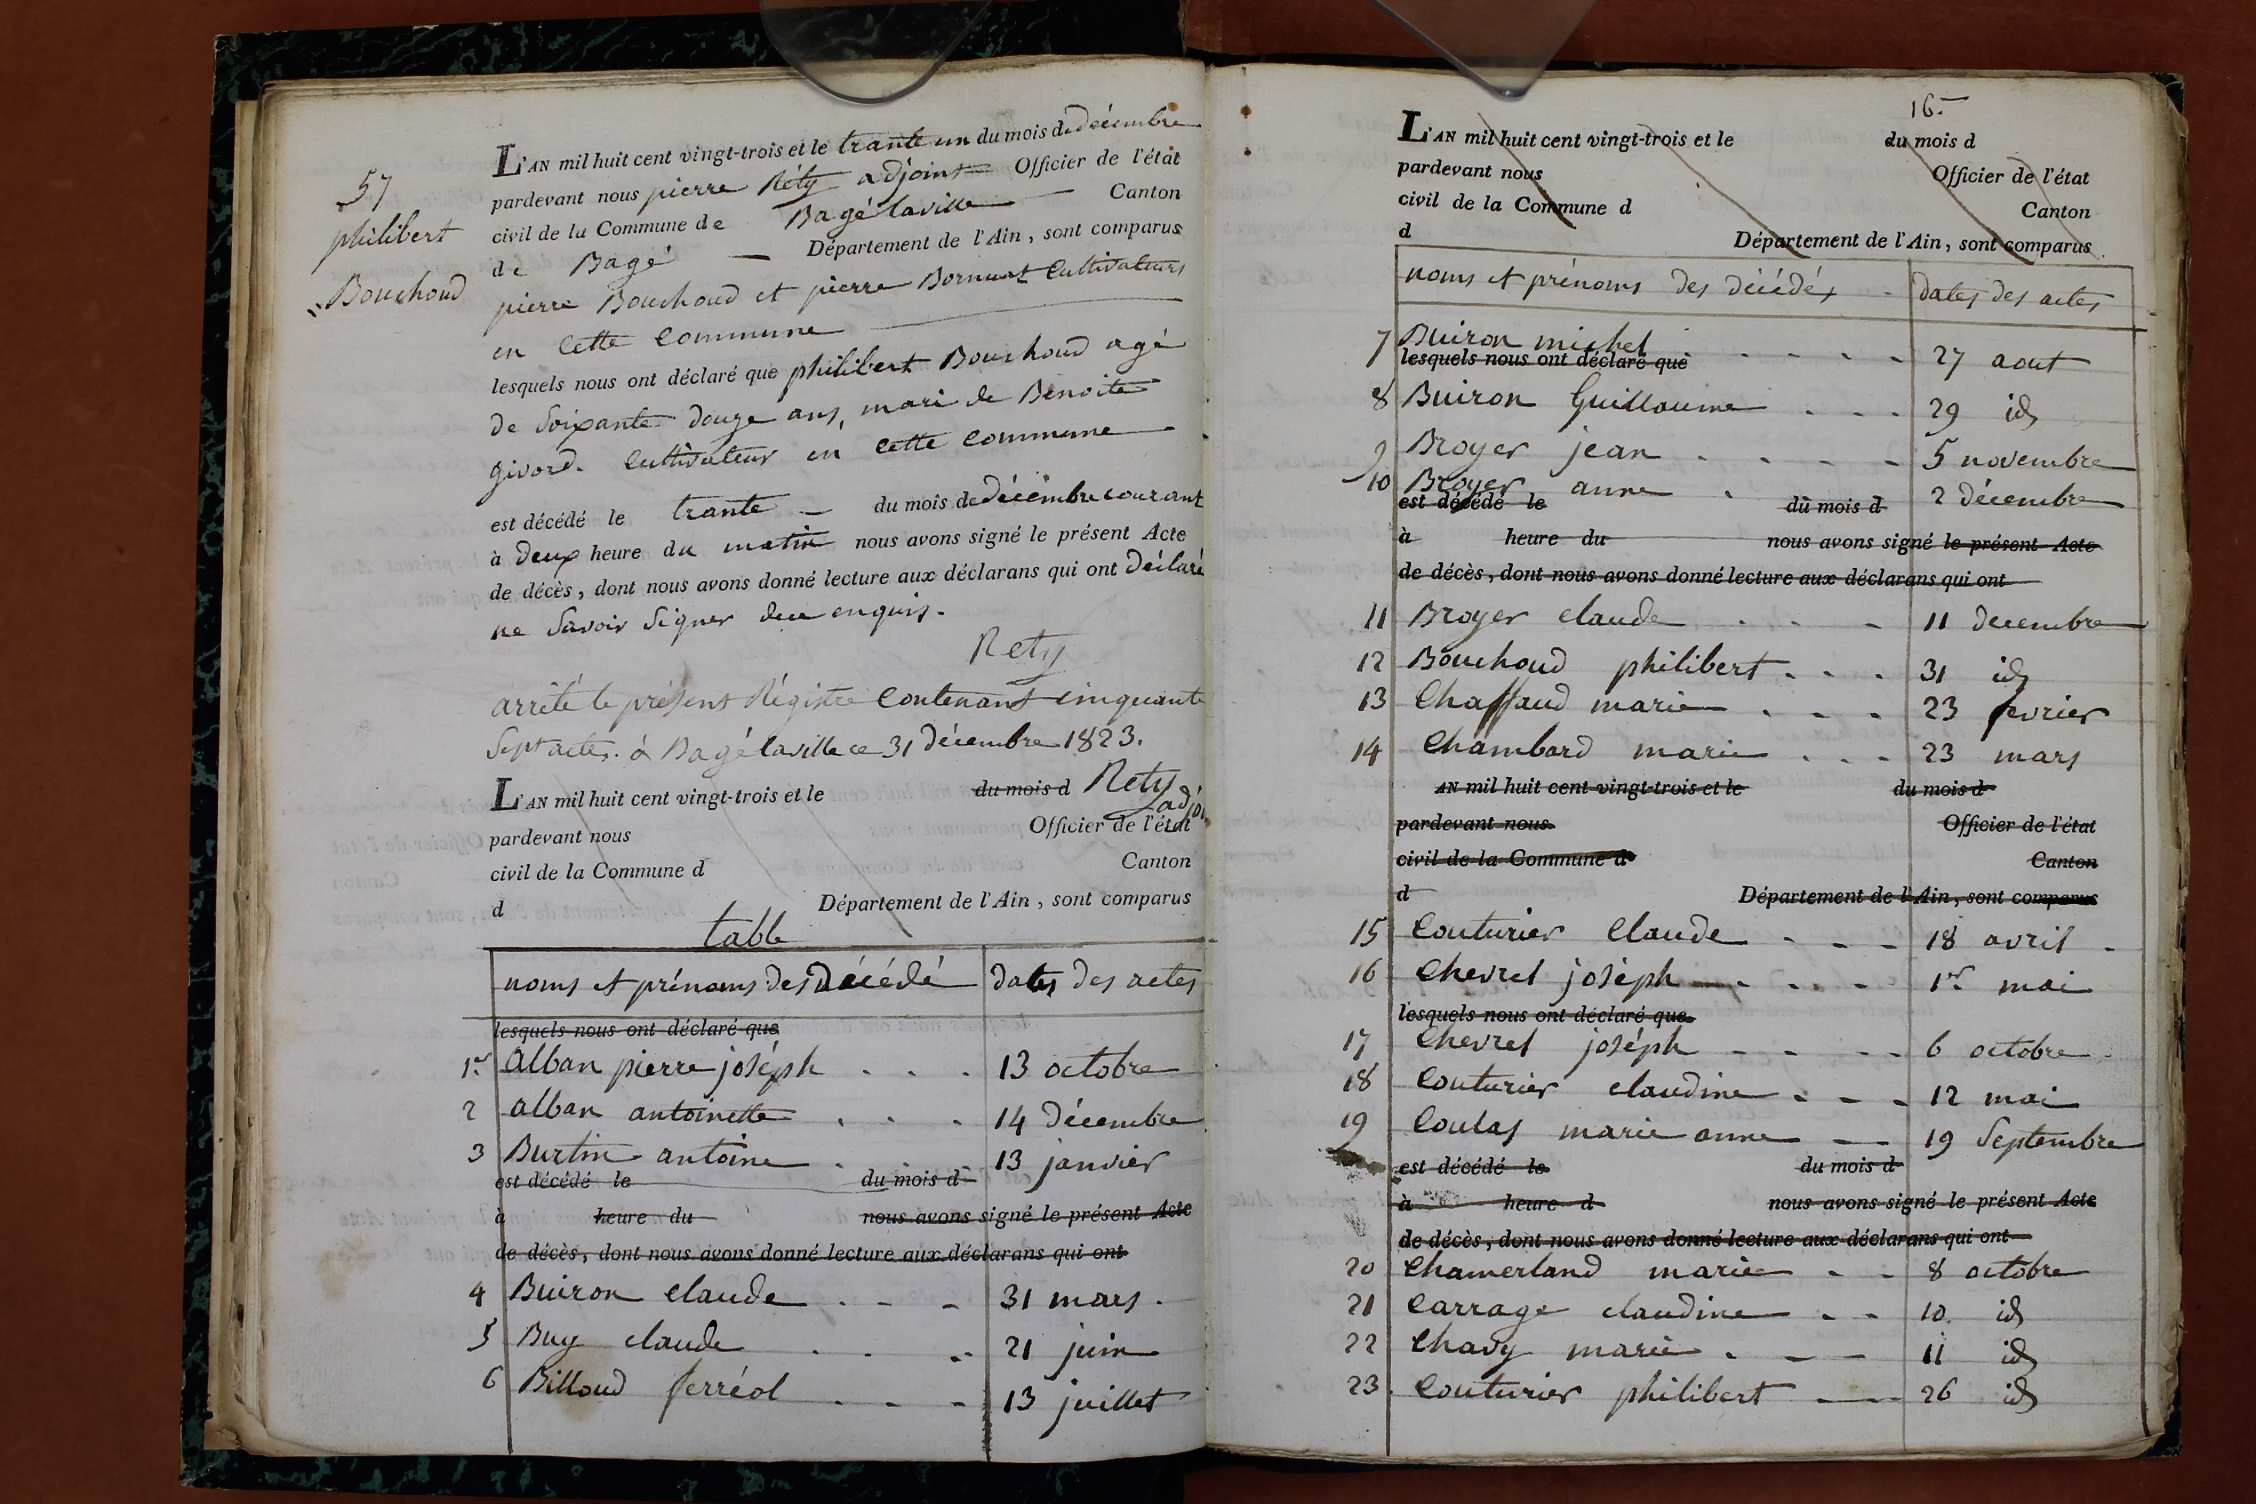 57
philibert
Bouchoud
L'AN mil huit cent vingt-trois et le trante un du mois de décembre
pardevant nous pierre Réty adjoint Officier de l'état
civil de la Commune de Bagé laville Canton
de Bagé — Département de l'Ain, sont comparus
pierre Bouchoud et pierre Bornuat Cultivateurs
en Cette Commune
lesquels nous ont déclaré que philibert Bouchoud agé
de Soixante douze ans, mari de Benoite
givord. Cultivateur en Cette Commune
est décédé le trante — du mois de décembre courant
à deux heure du matin nous avons signé le présent Acte
de décès, dont nous avons donné lecture aux déclarans qui ont déclaré
ne Savoir Signer de ce enquis.
Rety
arrêté le présent Régistre Contenant cinquante
Sept actes. à Bagé laville ce 31 décembre 1823.
Rety
adj
L'AN mil huit cent vingt-trois et le du mois d
pardevant nous Officier de l'état
civil de la Commune d Canton
d Département de l'Ain, sont comparus
table
noms et prénoms des Décédé dates des actes
lesquels nous ont déclaré que
1er alban pierre joséph . . . 13 octobre
2 alban antoinette . . . 14 décembre
3 Burtin antoine . . 13 janvier
est décédé le du mois d
à heure du nous avons signé le présent Acte
de décès, dont nous avons donné lecture aux déclarans qui ont
4 Buiron Claude . - - 31 mars.
5 Buy claude . . .. 21 juin
6 Billoud ferréol . - - 13 juillet
16.
L'AN mil huit cent vingt-trois et le du mois d
pardevant nous Officier de l'état
civil de la Commune d Canton
d Département de l'Ain, sont comparus
noms et prénoms des décédés dates des actes
7 Buiron michel . - - - - 27 aout
lesquels nous ont déclaré que
8 Buiron Guillaume . . . 29 id
9 Broyer jean . - . . - 5 novembre
10 Broyer anne . 2 décembre
est décédé le du mois d
à heure du nous avons signé le présent Acte
de décès, dont nous avons donné lecture aux déclarans qui ont
11 Broyer claude . . - - 11 decembre
12 Bouchoud philibert . . . 31 id
13 Chaffaud marie . . . 23 fevrier
14 Chambard marie . . . 23 mars
AN mil huit cent vingt-trois et le du mois d
pardevant nous Officier de l'état
civil de la Commune d Canton
d Département de l'Ain, sont comparus
15 Couturier Claude - - - 18 avril -
16 Chevrel joséph - . . - 1er mai
lesquels nous ont déclaré que
17 Chevrel joséph - - - - 6 octobre
18 Couturier claudine - - - 12 mai
19 Coulas marie anne - - 19 Septembre
est décédé le du mois d
à heure d nous avons signé le présent Acte
de décès, dont nous avons donné lecture aux déclarans qui ont
20 Chamerland marie - - 8 octobre
21 Carrage claudine - - 10 id
22 Chavy marie . - - 11 id
23 Couturier philibert - - 26 id